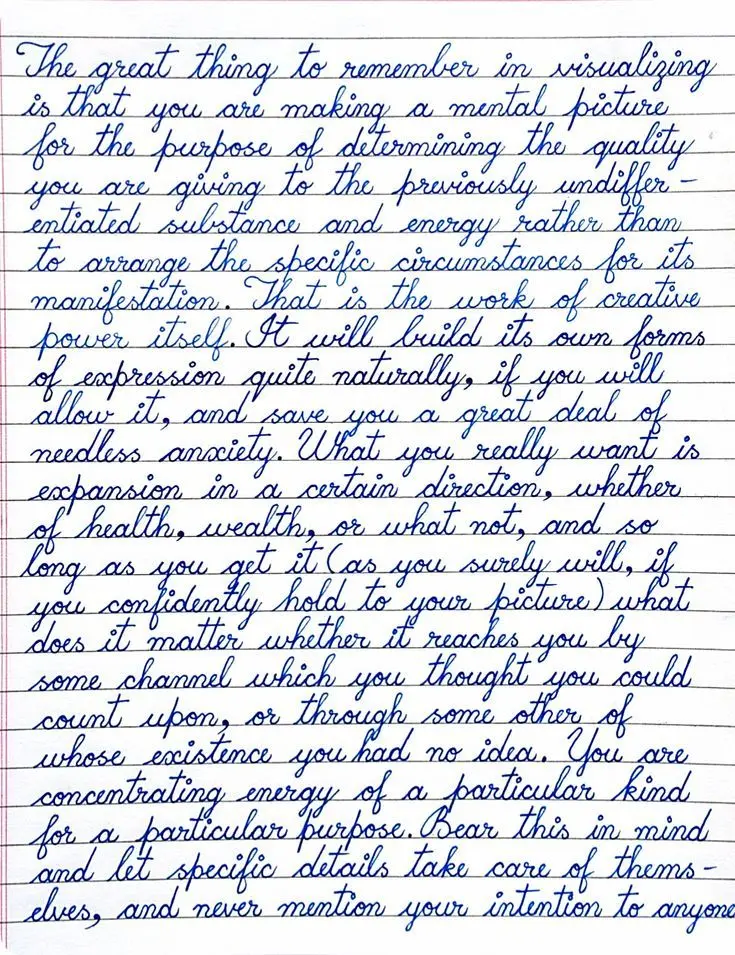 The great thing to remember in visualizing
is that you are making a mental picture
for the purpose of determining the quality
you are giving to the previously undiffer-
entiated substance and energy rather than
to arrange the specific circumstances for its
manifestation. That is the work of creative
power itself. It will build its own forms
of expression quite naturally, if you will
allow it, and save you a great deal of
needless anxiety. What you really want is
expansion in a certain direction, whether
of health, wealth, or what not, and so
long as you get it (as you surely will, if
you confidently hold to your picture) what
does it matter whether it reaches you by
some channel which you thought you could
count upon, or through some other of
whose existence you had no idea. You are
concentrating energy of a particular kind
for a particular purpose. Bear this in mind
and let specific details take care of thems-
elves, and never mention your intention to anyone